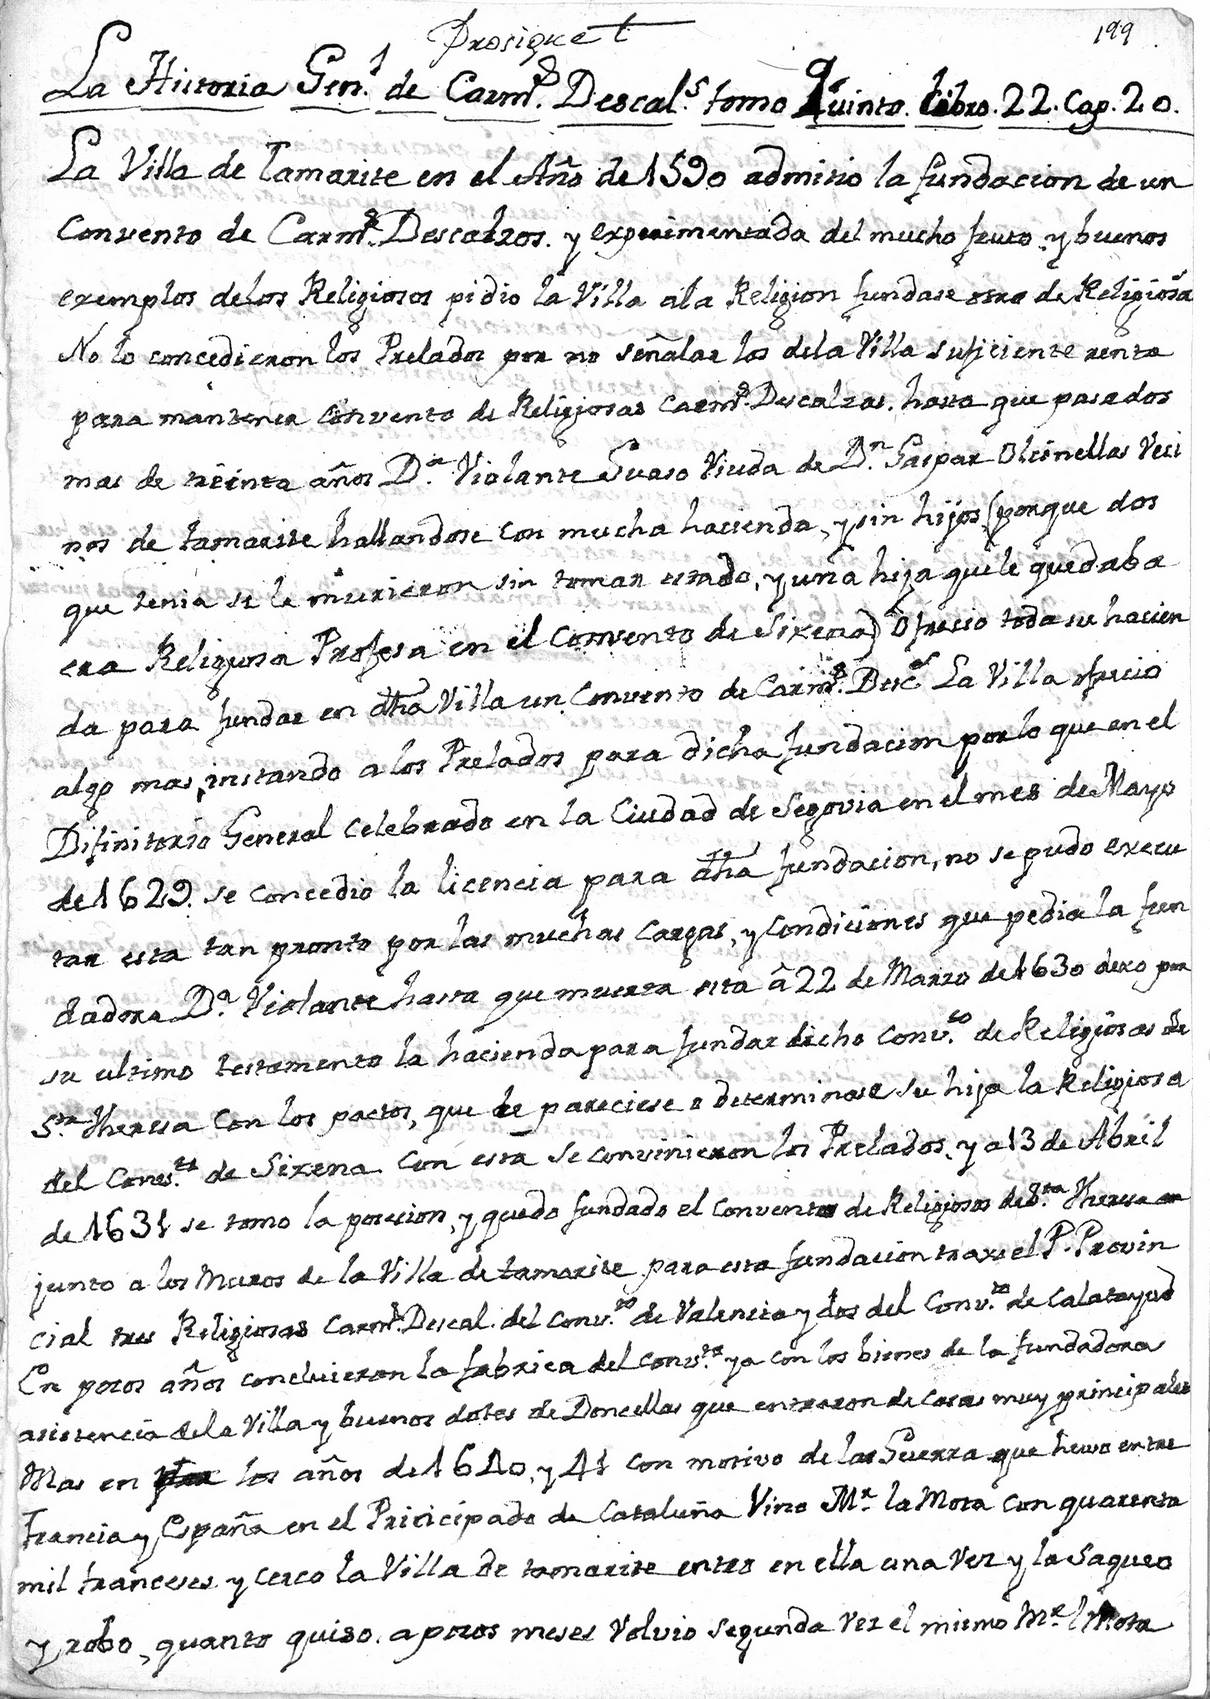 Prosigue t
199
La Historia Gen.l de Carm.s Descal.s tomo Quinto. libro. 22. Cap. 20.
La Villa de Tamarite en el Año de 1590 admitio la fundacion de un
Convento de Carm.s Descalzos. y experimentada del mucho fruto, y buenos
exemplos de los Religiosos pidio la Villa a la Religion fundase otro de Religiosas
No lo concedieron los Prelados por no señalar los dela Villa suficiente renta
para mantener convento de Religiosas Carm.s Descalzas. hasta que pasados
mas de treinta años D.a Violante Suaso Viuda de D.n Gaspar Olcinellas Veci
nos de tamarite hallandose con mucha hacienda, y sin hijos (porque dos
que tenia se le murieron sin tomar estado, y una hija que le quedaba
era Religiosa Profesa en el Convento de Sixena) Ofrecio toda su hacien
da para fundar en dha Villa un Convento de Carm.s Desc.s La Villa ofrecio
algo mas, instando a los Prelados para dicha fundacion por lo que en el
Difinitorio General celebrado en la Ciudad de Segovia en el mes de Mayo
de 1629. se concedio la licencia para dha fundacion, no se pudo execu
tar esta tan pronto por las muchas cargas, y condiciones que pedia la fun
dadora D.a Violante hasta que muerta esta â 22 de Marzo de 1630 dexo por
su ultimo testamento la hacienda para fundar dicho Conv.to de Religiosas de
S.ta Theresa con los pactos, que le pareciese o determinase su hija la Religiosa
del Conv.to de Sixena. Con esta se convinieron los Prelados, y a 13 de Abril
de 1631 se tomo la posesion, y quedo fundado el convento de Religiosas de S.ta Theresa
junto a los Muros de la Villa de tamarite. para esta fundacion traxo el P. Provin
cial tres Religiosas Carm.s Descal. del Conv.to de Valencia y dos del Conv.to de Calatayud
En pocos años concluieron la fabrica del conv.to ya con los bienes de la fundadora
asistencia de la Villa y buenos dotes de Doncellas que entraron de casas muy principales
Mas en los años de 1640, y 41 con motivo de las Guerra que huvo entre
Francia y España en el Pricicipado de Cataluña Vino M.r la Mota con quarenta
mil franceses y cerco la Villa de tamarite entro en ella una vez y la saqueo
y robo, quanto quiso. a pocos meses Volvio segunda vez el mismo M.r l Mota